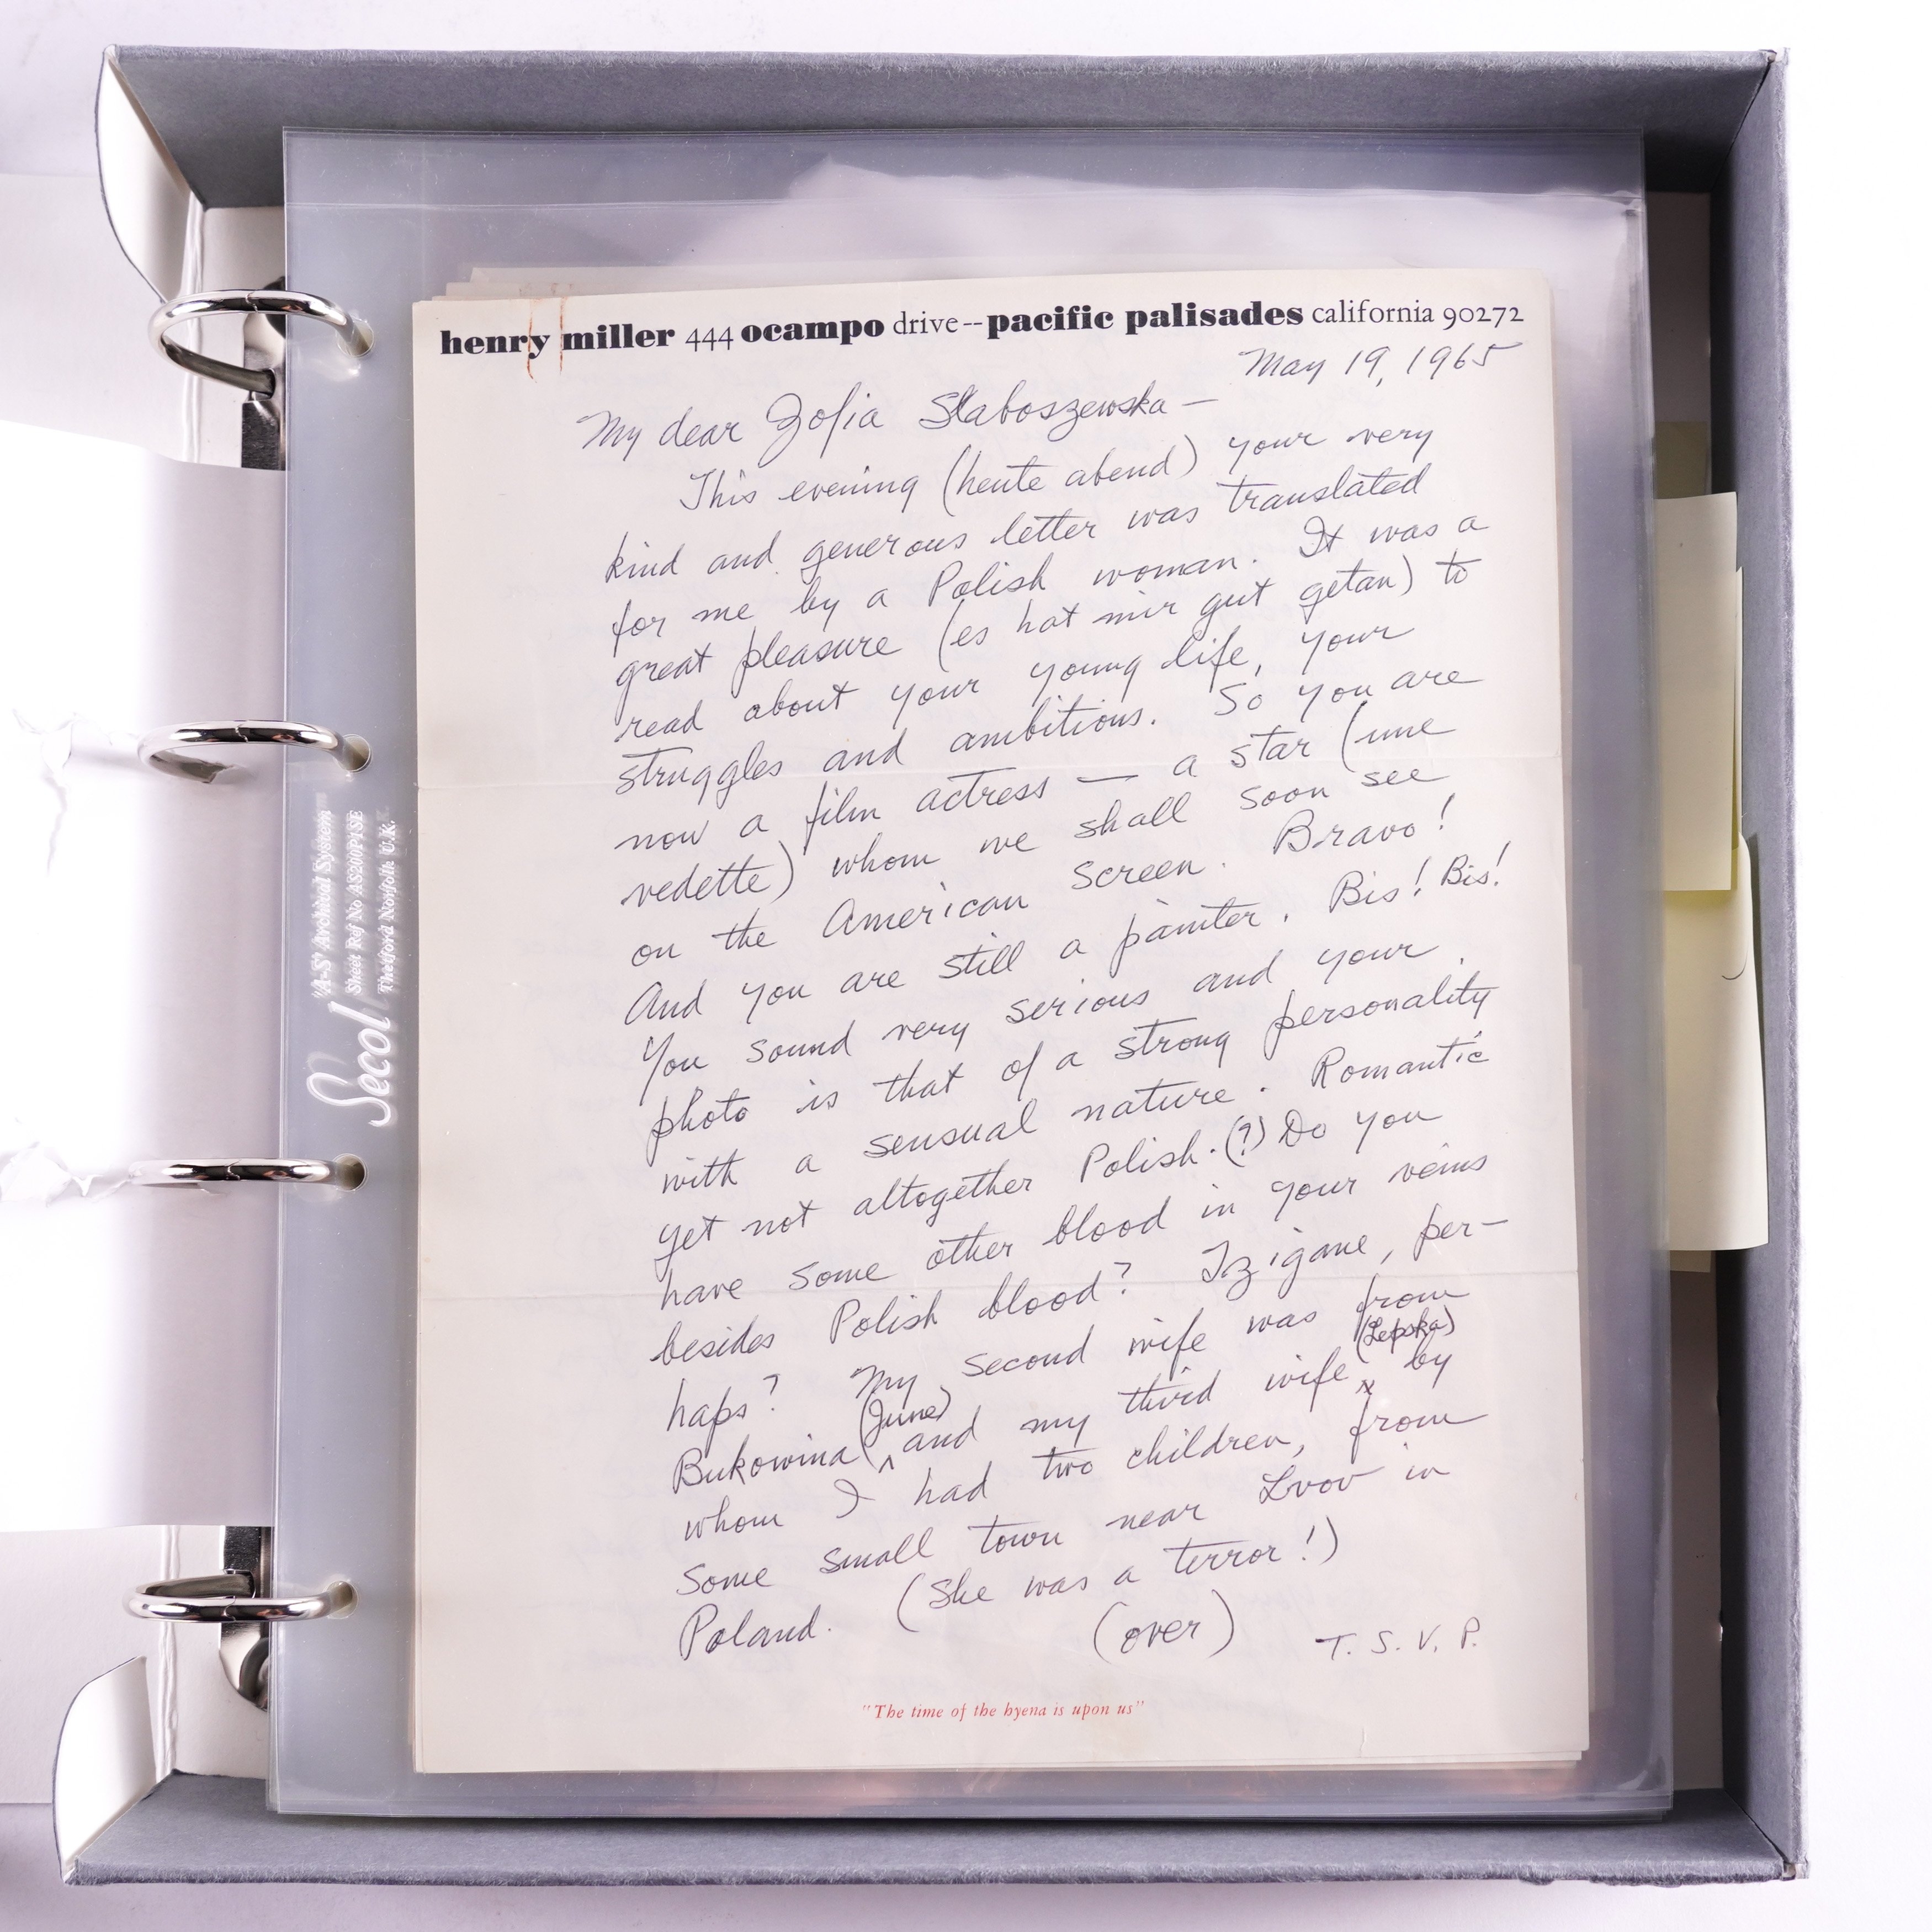 henry miller 444 ocampo drive--pacific palisades california 90272
May 19, 1965
My dear Zofia Slaboszewska —
This evening (heute abend) your very
kind and generous letter was translated
for me by a Polish woman. It was a
great pleasure (es hat mir gut getan) to
read about your young life, your
struggles and ambitions. So you are
now a film actress — a star (une
vedette) whom we shall soon see
on the American screen. Bravo!
And you are still a painter. Bis! Bis!
You sound very serious and your
photo is that of a strong personality
with a sensual nature. Romantic
yet not altogether Polish.(?) Do you
have some other blood in your veins
besides Polish blood? Tzigane, per-
haps? My second wife was from
Bukowina (June) and my third wife (Lepska) by
whom I had two children, from
some small town near Lvov in
Poland. (She was a terror!)
(over) T. S. V. P.
"The time of the hyena is upon us"
Secol
'A-S' Archival System
Sheet Ref No AS200P1SE
Thetford Norfolk U.K.